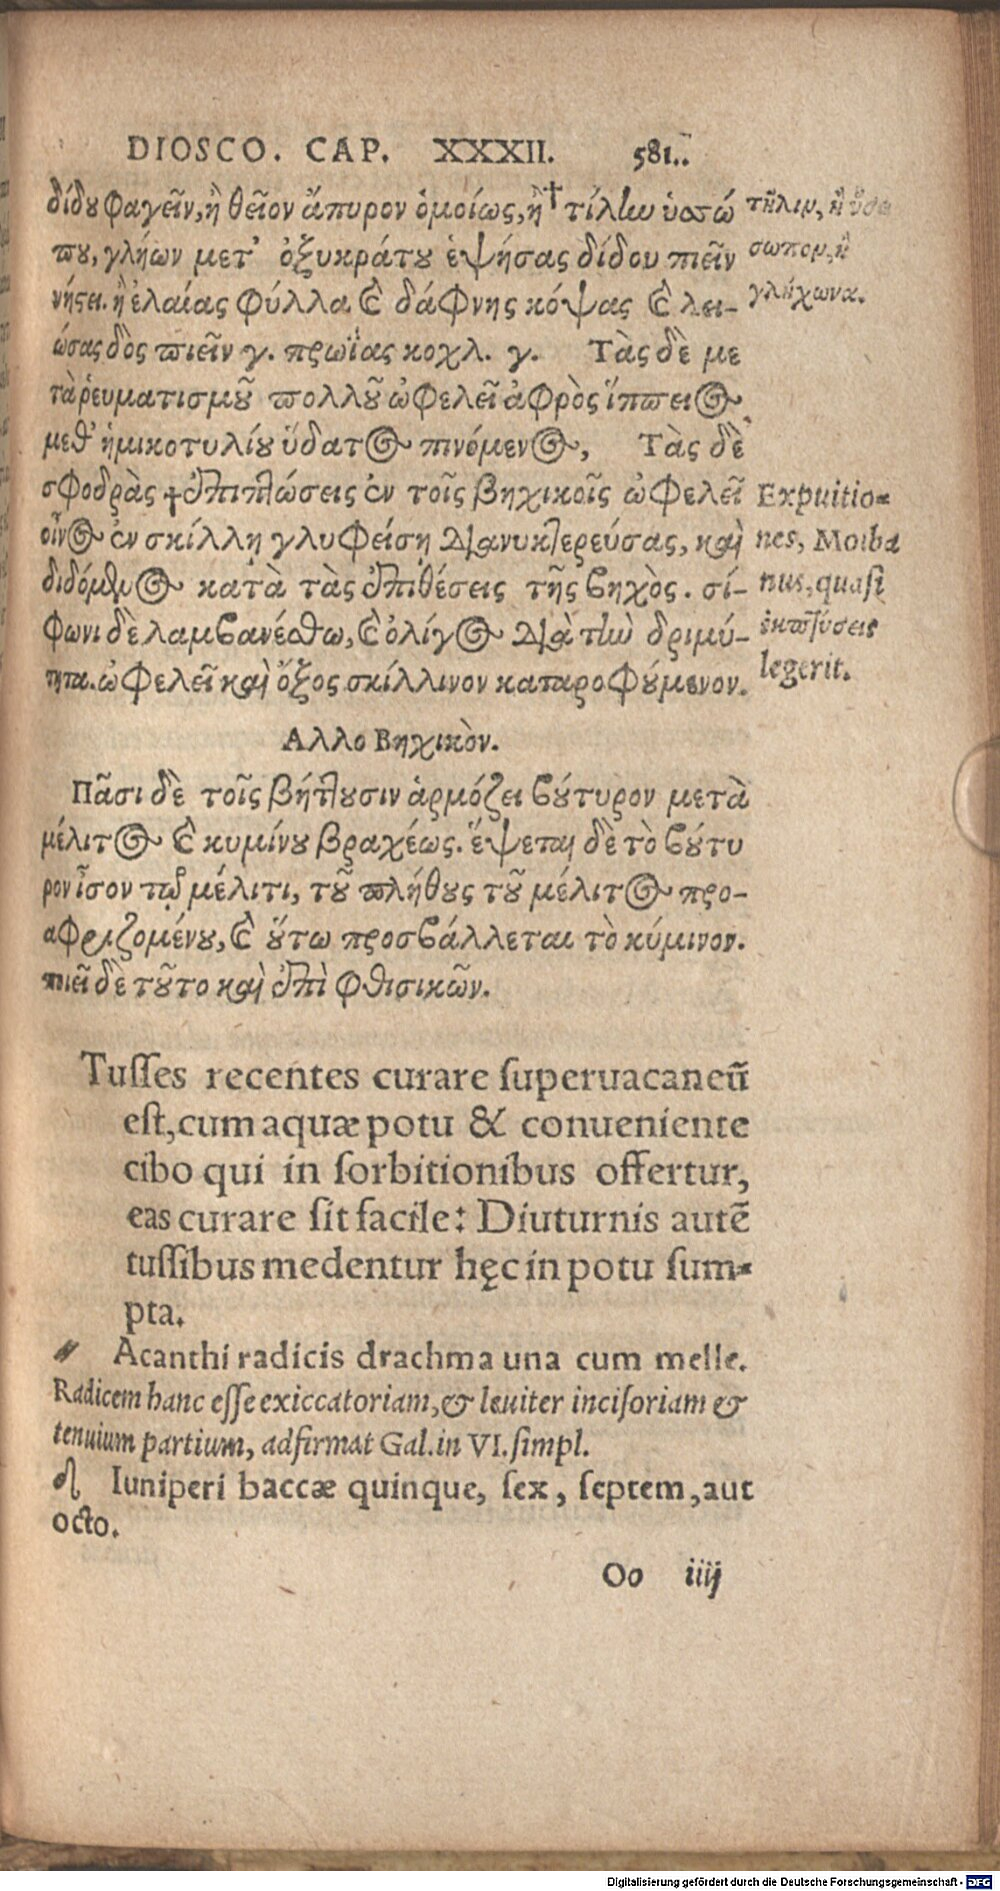 DIOSCO. CAP. XXXII. 581.
δίδου φαγεῖν, ἢ θεῖον ἄπυρον ὁμοίως, ἢ † τίλιω ὑοσώ
που, γλήων μετ' ὀξυκράτου ἑψήσας δίδου πιεῖν
νήστει. ἢ ἐλαίας φύλλα καὶ δάφνης κόψας καὶ λει-
ώσας δὸς πιεῖν γ. πρωΐας κοχλ. γ. Τὰς δὲ με
τὰ ῥευματισμοῦ πολλοῦ ὠφελεῖ ἀφρὸς ἵππειος
μεθ' ἡμικοτυλίου ὕδατος πινόμενος, Τὰς δὲ
σφοδρὰς † ἐπιπλώσεις ἐν τοῖς βηχικοῖς ὠφελεῖ
οἶνος ἐν σκίλλῃ γλυφείσῃ διανυκτερεύσας, καὶ
διδόμενος κατὰ τὰς ἐπιθέσεις τῆς βηχὸς. σί-
φωνι δὲ λαμβανέσθω, καὶ ὀλίγος διὰ τὴν δριμύ-
τητα. ὠφελεῖ καὶ ὄξος σκίλλινον καταροφύμενον.
τῆλιν, ἢ ὕσ
σωπον, ἢ
γλήχωνα.
Expuitio-
nes, Moiba
nus, quasi
ἐκπτύσεις
legerit.
Αλλο Βηχικὸν.
Πᾶσι δὲ τοῖς βήττουσιν ἁρμόζει βούτυρον μετὰ
μέλιτος καὶ κυμίνου βραχέως. ἕψεται δὲ τὸ βούτυ
ρον ἶσον τῷ μέλιτι, τοῦ πλήθους τοῦ μέλιτος προ-
αφριζομένου, καὶ οὕτω προσβάλλεται τὸ κύμινον.
ποιεῖ δὲ τοῦτο καὶ ἐπὶ φθισικῶν.
Tusses recentes curare superuacaneū
est, cum aquæ potu & conueniente
cibo qui in sorbitionibus offertur,
eas curare sit facile: Diuturnis autē
tussibus medentur hęc in potu sum-
pta.
Acanthi radicis drachma una cum melle.
Radicem hanc esse exiccatoriam, & leuiter incisoriam &
tenuium partium, adfirmat Gal. in VI. simpl.
Iuniperi baccæ quinque, sex, septem, aut
octo.
Oo iiij
Digitalisierung gefördert durch die Deutsche Forschungsgemeinschaft - DFG